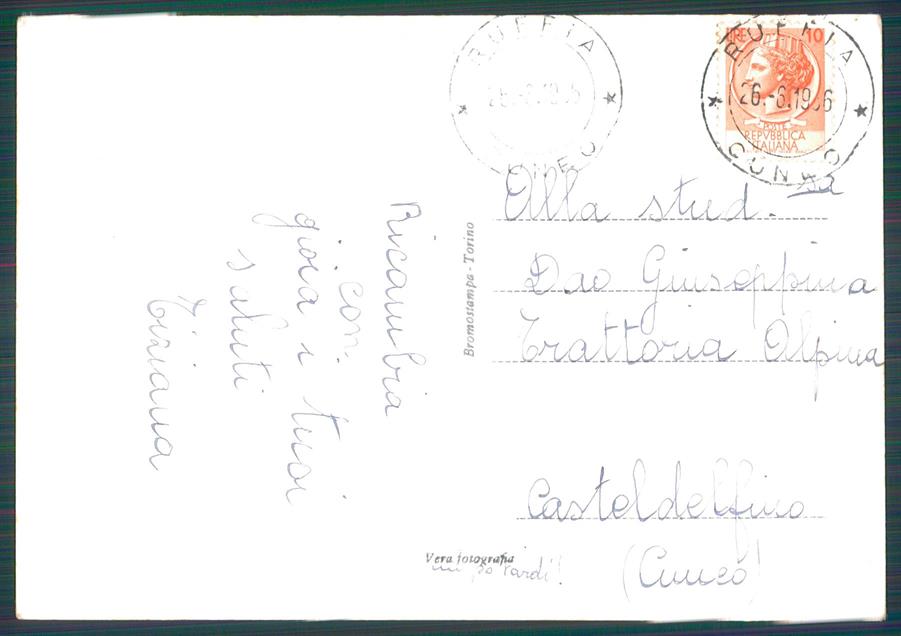 Ricambia
con
gioia i tuoi
saluti
Tiziana
Bromostampa - Torino
Vera fotografia
un po' tardi!
RUFFIA
CUNEO
RUFFIA
26.-6.19 6
CUNEO
LIRE 10
POSTE
REPVBBLICA
ITALIANA
Alla stud.sa
Dao Giuseppina
Trattoria Alpina
Casteldelfino
(Cuneo)